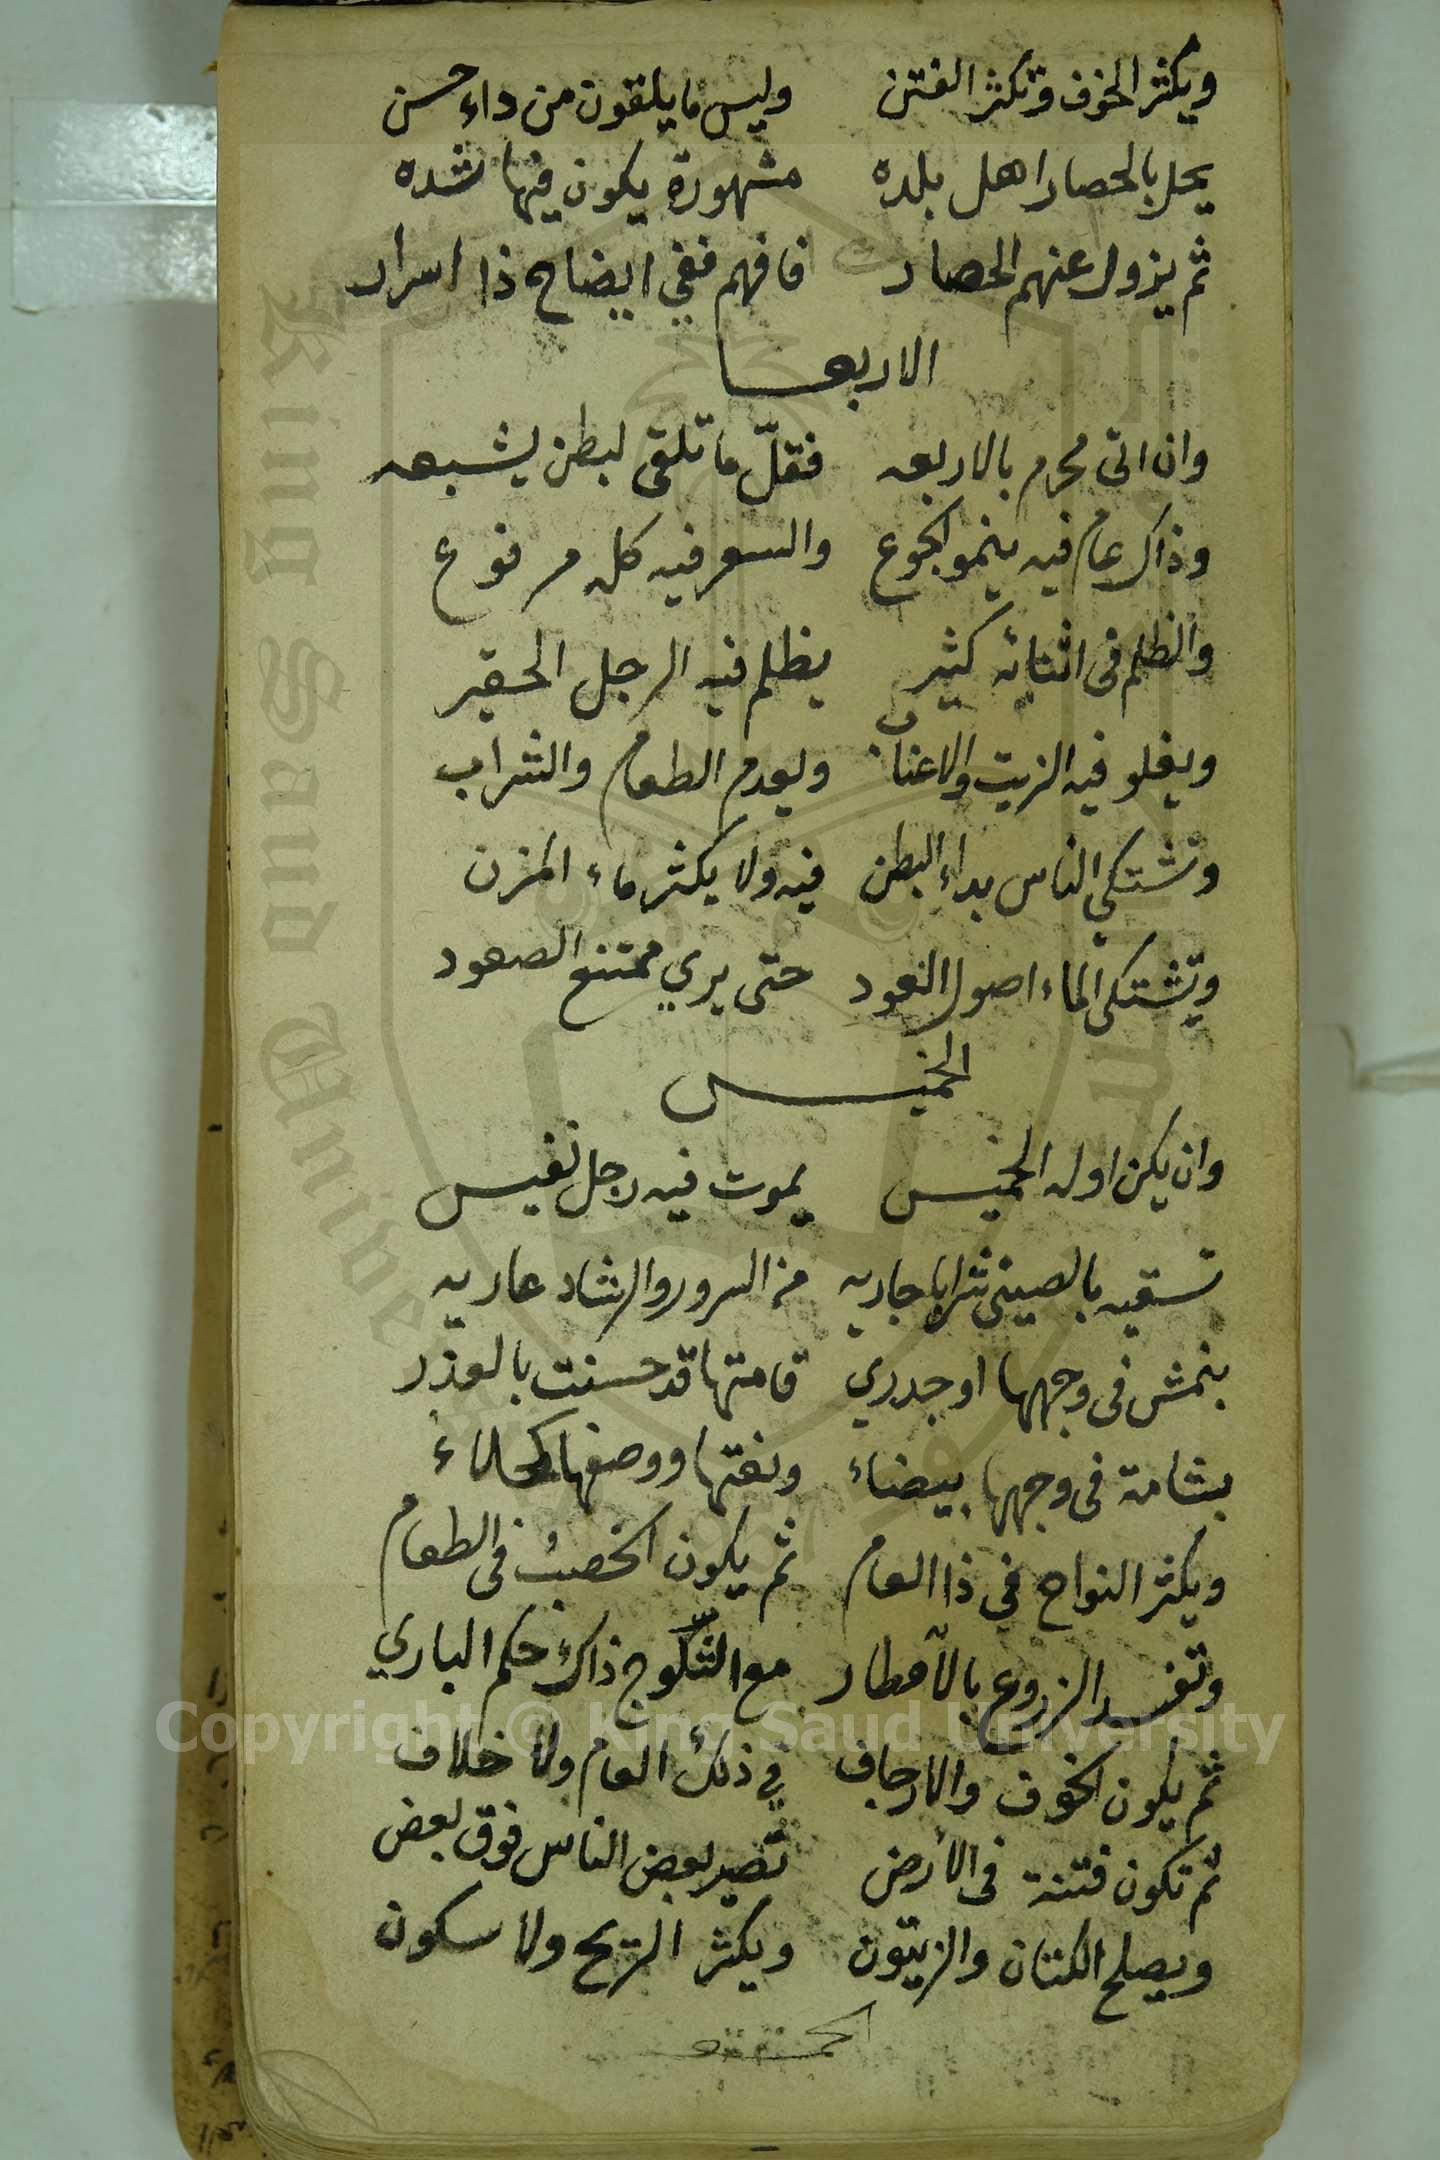 ويكثر الخوف وتكثر الفتن وليس ما يلقون من داء حسن
يحل بالحصار اهل بلده مشهورة يكون فيها شده
ثم يزول عنهم الحصار فافهم ففي ايضاح ذا اسرار
الاربعا
وان اتى محرم بالاربعه فقلّ ما تلقى لبطن يشبعه
وذاك عام فيه ينمو الجوع والسعر فيه كله مرفوع
والظلم في اثنائه كثير يظلم فيه الرجل الحقير
ويغلو فيه الزيت والاعناب ويعدم الطعام والشراب
وتشتكي الناس بداء البطن فيه ولا يكثر ماء المزن
وتشتكي الماء اصول العود حتى يري ممتنع الصعود
الخميس
وان يكن اوله الخميس يموت فيه رجل نفيس
تسقيه بالصيني شرابا جاريه من السرور والرشاد عاريه
بنمش في وجهها او جدري قامتها قد حسنت بالعذر
بشامة في وجهها بيضاء ونعتها ووصفها كحلاء
ويكثر النواح في ذا العام ثم يكون الخصب في الطعام
وتفسد الزروع بالأمطار مع الثلوج ذاك حكم الباري
ثم يكون الخوف والارجاف في ذلك العام ولا خلاف
ثم تكون فتنة في الأرض تصير بعض الناس فوق بعض
ويصلح الكتان والزيتون ويكثر الريح ولا سكون
Copyright © King Saud University
King Saud University